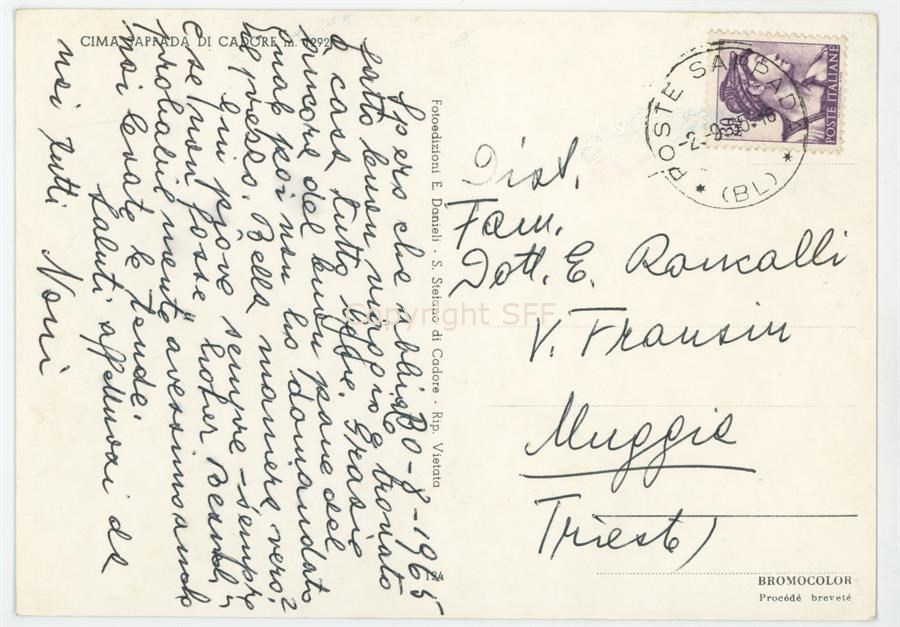 CIMA SAPPADA DI CADORE m. 1292
30-8-1965
Spero che abbiate trovato
tutto e buon viaggio. Grazie
a casa tutto
ancora del buon pane del
ma poi non ho domandato
prezzo. Bella maniera vero?
Qui piove sempre - sempre
e se non fosse "hoher Besuch"
probabilmente avessimo anche
noi levate le tende.
Saluti affettuosi da
noi tutti Nori
Fotoedizioni E. Danieli - S. Stefano di Cadore - Rip. Vietata
124
Copyright SFF
POSTE ITALIANE
POSTE SAPPADA
-2.-9.65-18
(BL)
Dist.
Fam.
Dott. E. Roncalli
V. Frausin
Muggia
Trieste
BROMOCOLOR
Procédé breveté